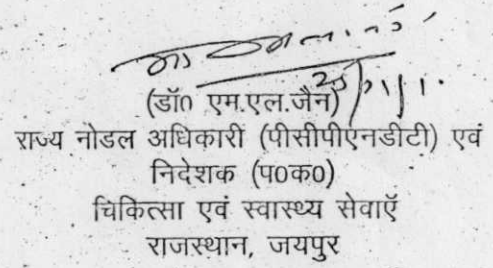 (डॉ0 एम.एल.जैन)
राज्य नोडल अधिकारी (पीसीपीएनडीटी) एवं
निदेशक (प0क0)
चिकित्सा एवं स्वास्थ्य सेवाऍ
राजस्थान, जयपुर